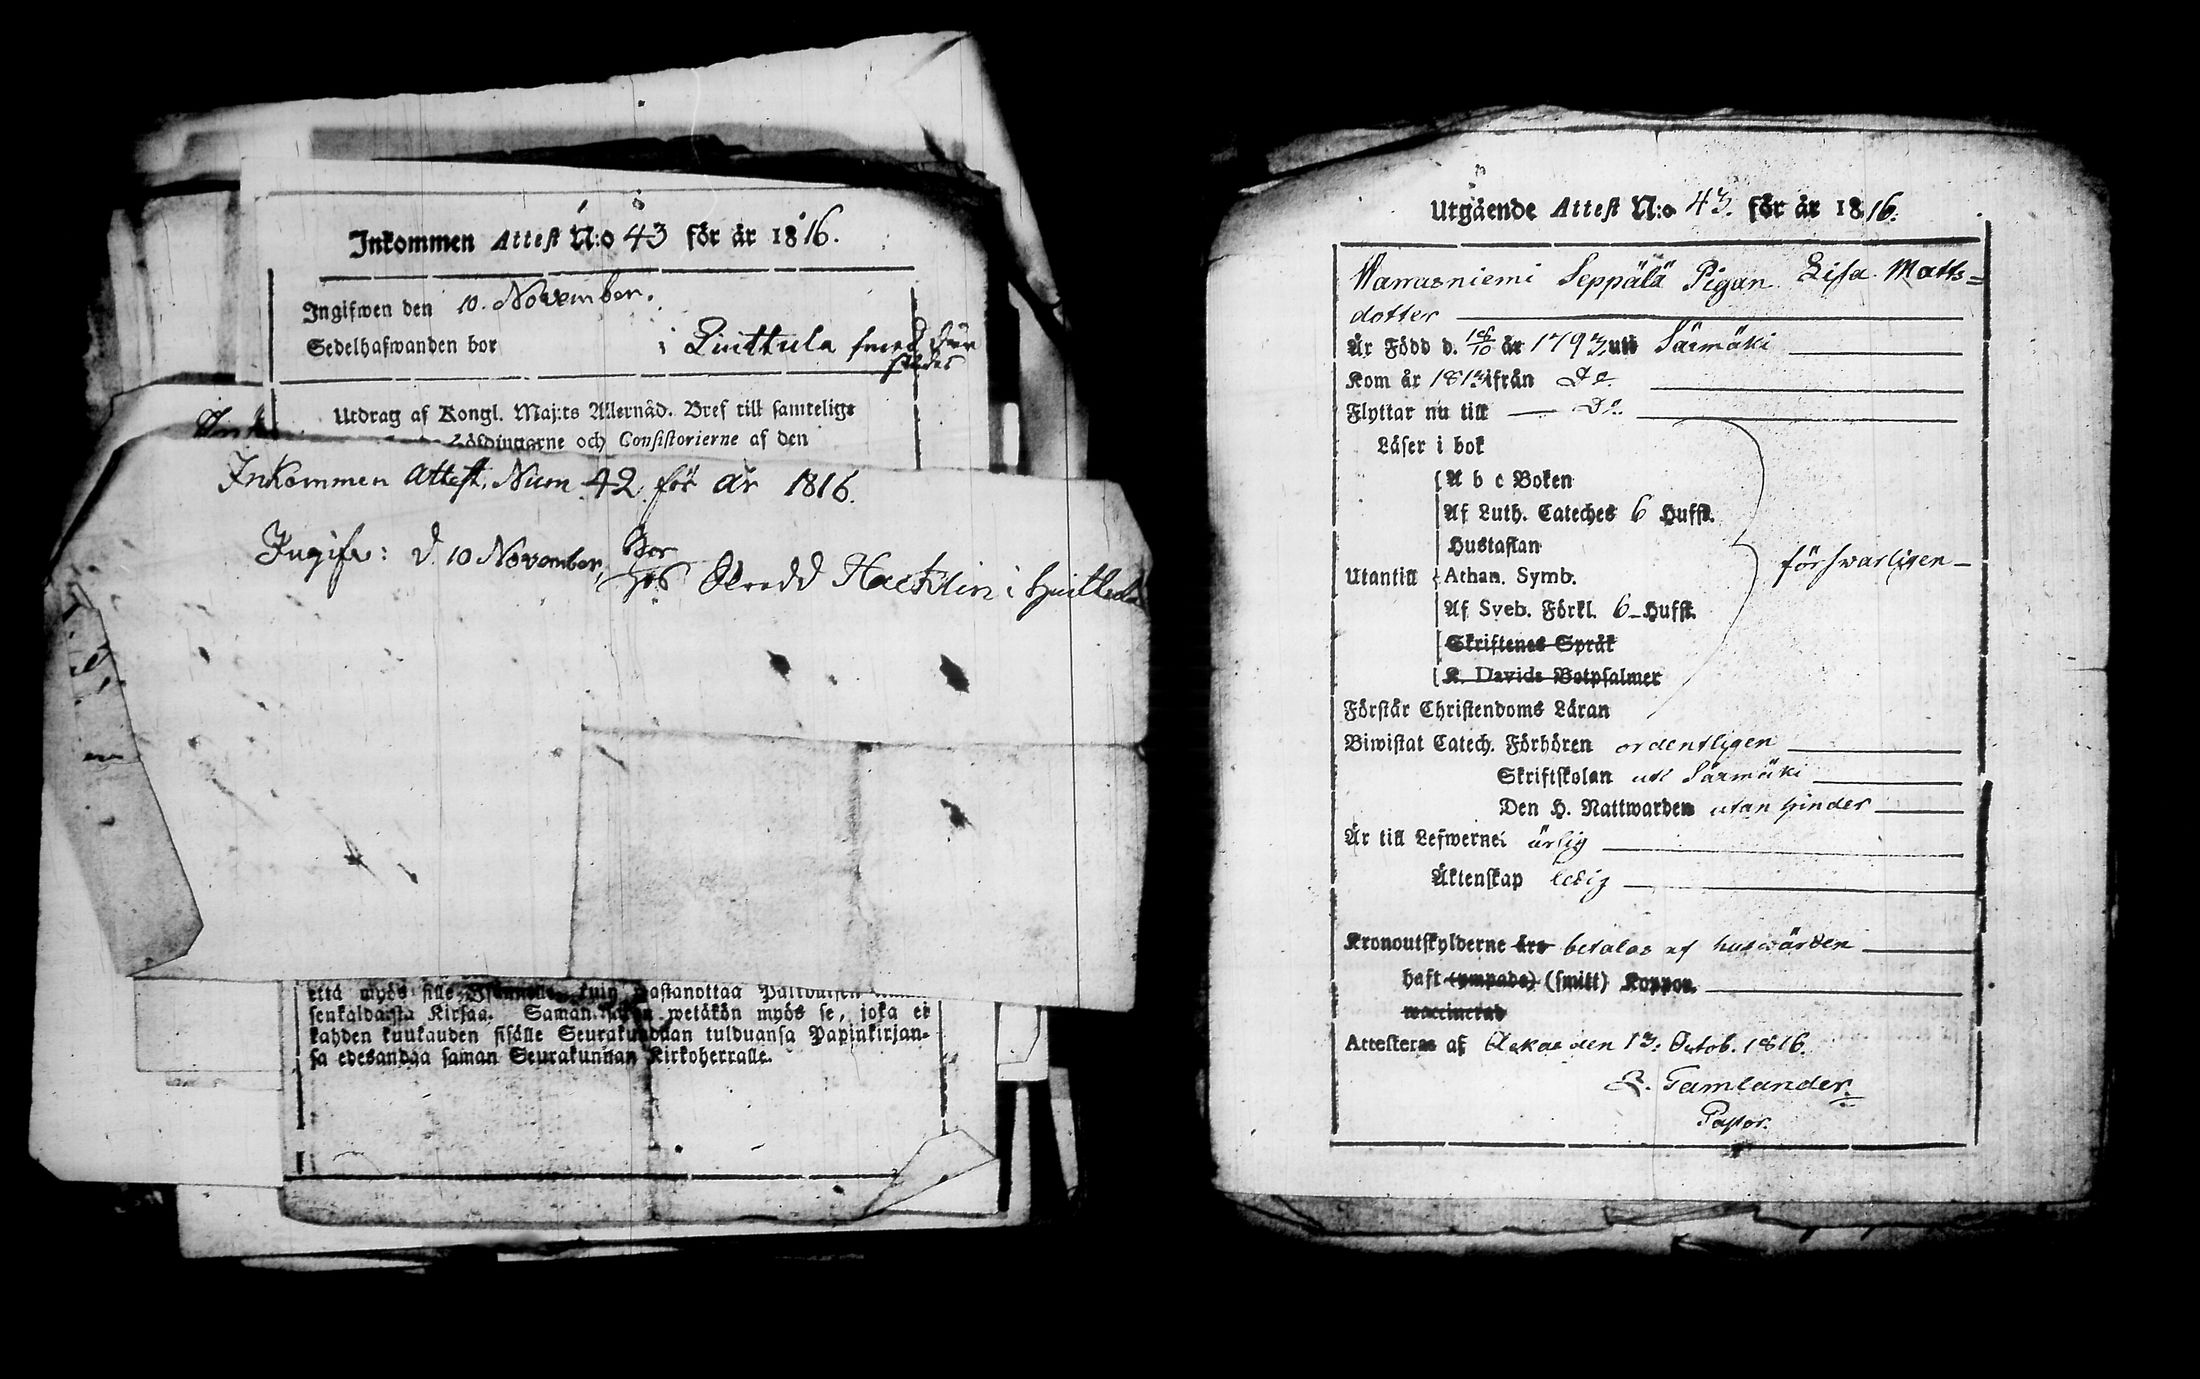 Inkommen Attest N:o 43 för år 1816.
Ingifwen den 10. November.
Sedelhafwanden bor i Quittula
Utdrag af Kongl. Maj:ts Allernåd. Bref till samtelige
och Consistorierne af den
Inkommen Attest. Num 42. för år 1816.
Ingifv: d 10 November, Bor
hos i
että myös sille
senkaldaista Kirjaa. Saman wetäkön myös se, joka ei
kahden kuukauden sisälle Seurakundaan tulduansa Papinkirjan-
sa edesandaa saman Seurakunnan Kirkoherralle.
Utgående Attest N:o 43. för år 1816.
Warrasniemi Seppälä Pigan Lisa Matts=
dotter
År Född d. år 1793. uti Särmäki
Kom år 1813 ifrån Do.
Flyttar nu till — Do.
Läser i bok
A b c Boken
Af Luth. Cateches 6 Hufst.
Hustaflan
Utantill Athan. Symb.
försvarligen —
Af Sveb. Förkl. 6 Hufst.
Skriftenes Språk
K. Davids Botpsalmer
Förstår Christendoms Läran
Biwistat Catech. Förhören ordentligen
Skriftskolan uti Särmäki
Den H. Nattwarden utan hinder
Är till Lefwernet ärlig
Äktenskap ledig
Kronoutskylderne äro betalas af huswärden
haft (ympade) (smitt) Koppor.
vaccinerad
Attesteras af Askas den 13. Octob. 1816.
Tamlander.
Pastor.